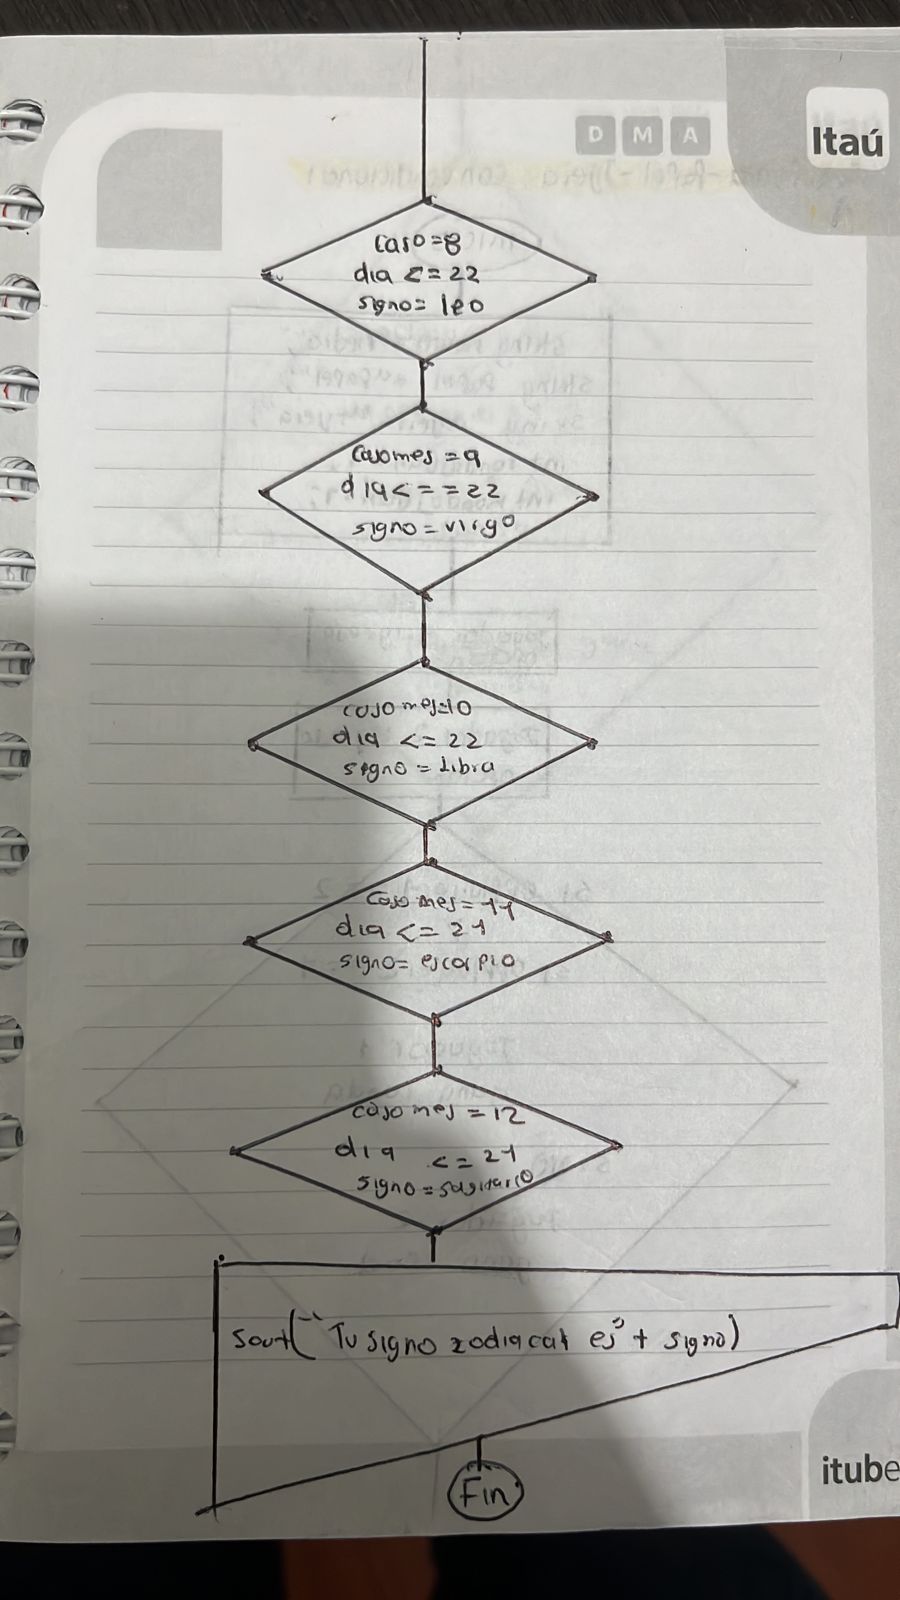 D M A
Itaú
caso=8
dia <= 22
signo= leo
caso mes = 9
dia < = = 22
signo = virgo
caso mes=10
dia <= 22
signo = Libra
caso mes = 11
dia <= 21
signo= escorpio
caso mes = 12
dia <= 21
signo = sagitario
sout(" Tu signo zodiacal es" + signo)
Fin
itube